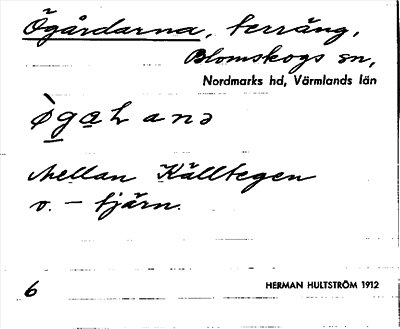 Ögårdarna, terräng,
Blomskogs sn,
Nordmarks hd, Värmlands län
ø̀gaƚ anə
Mellan Källtegen
o. – tjärn.
6 HERMAN HULTSTRÖM 1912